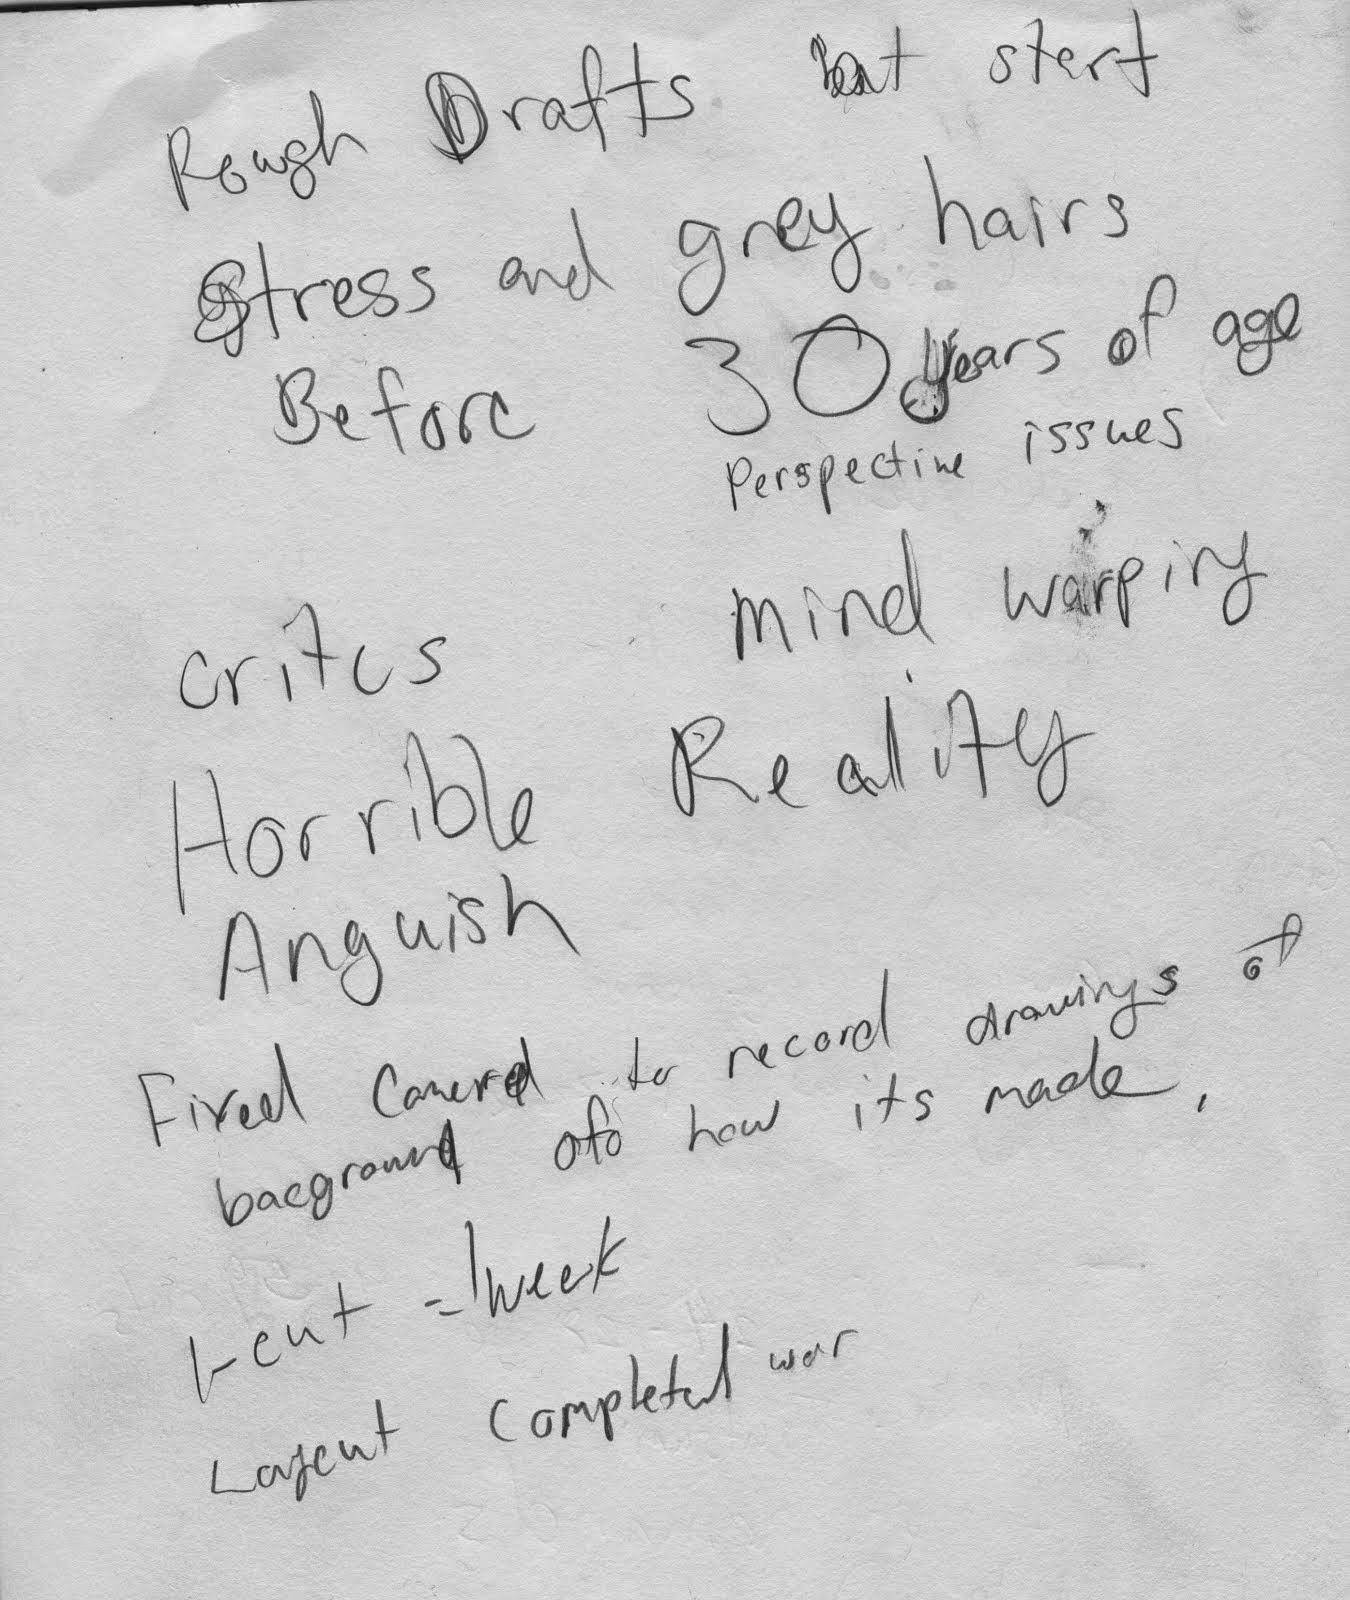 Rough Drafts but start
Stress and grey hairs
Before 30 years of age
Perspective issues
critcs mind warping
Horrible Reality
Anguish
Fixed Camera to record drawings of
bacground of how its made.
= 1 week
Layout completed war